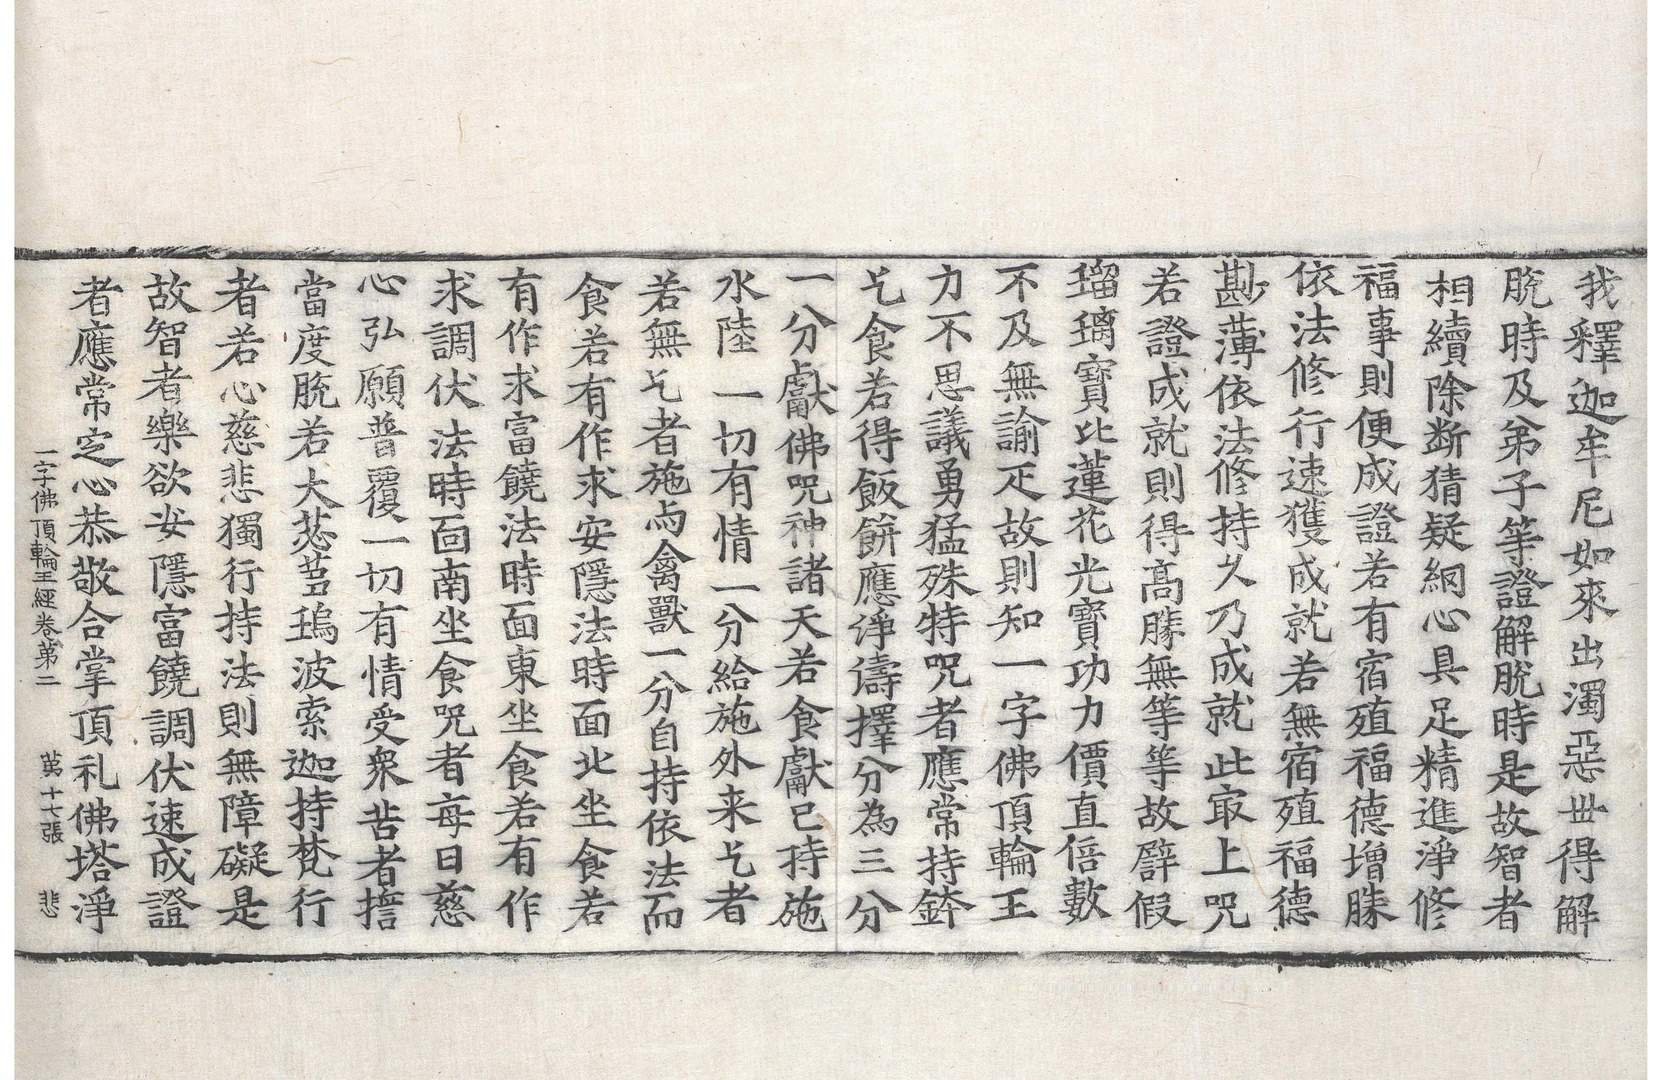 我釋迦牟尼如來出濁惡世得解
脫時及弟子等證解脫時是故智者
相續除断猜疑網心具足精進淨修
福事則便成證若有宿殖福德增勝
依法修行速獲成就若無宿殖福德
尠薄依法修持久乃成就此㝡上呪
若證成就則得髙勝無等等故譬假
瑠璃寶比蓮花光寶功力價直倍數
不及無諭疋故則知一字佛頂輪王
力不思議勇猛殊特呪者應常持鉢
乞食若得飯餅應淨濤擇分為三分
一分獻佛呪神諸天若食獻已持施
水陸一切有情一分給施外来乞者
若無乞者施与禽獸一分自持依法而
食若有作求安隱法時面北坐食若
有作求富饒法時面東坐食若有作
求調伏法時面南坐食呪者每日慈
心弘願普覆一切有情受衆苦者擔
當度脫若大苾蒭鄔波索迦持梵行
者若心慈悲獨行持法則無障礙是
故智者樂欲安隱富饒調伏速成證
者應常定心恭敬合掌頂礼佛塔淨
一字佛頂輪王經卷第二　萬　十七張　悲